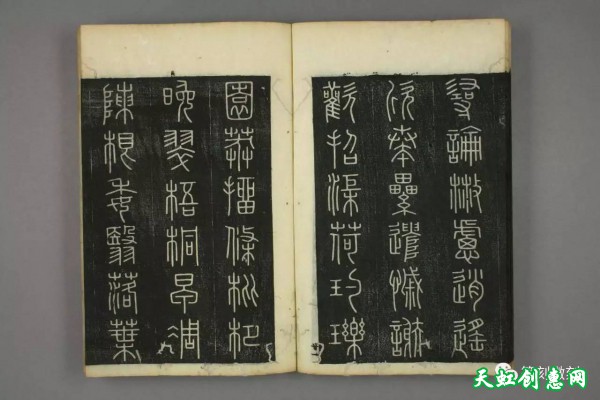 尋論散慮逍遙
欣奏纍遣慼謝
歡招渠荷玓瓅
園莽抽條枇杷
晚翠梧桐早凋
陳根委翳落葉
天虹创意网